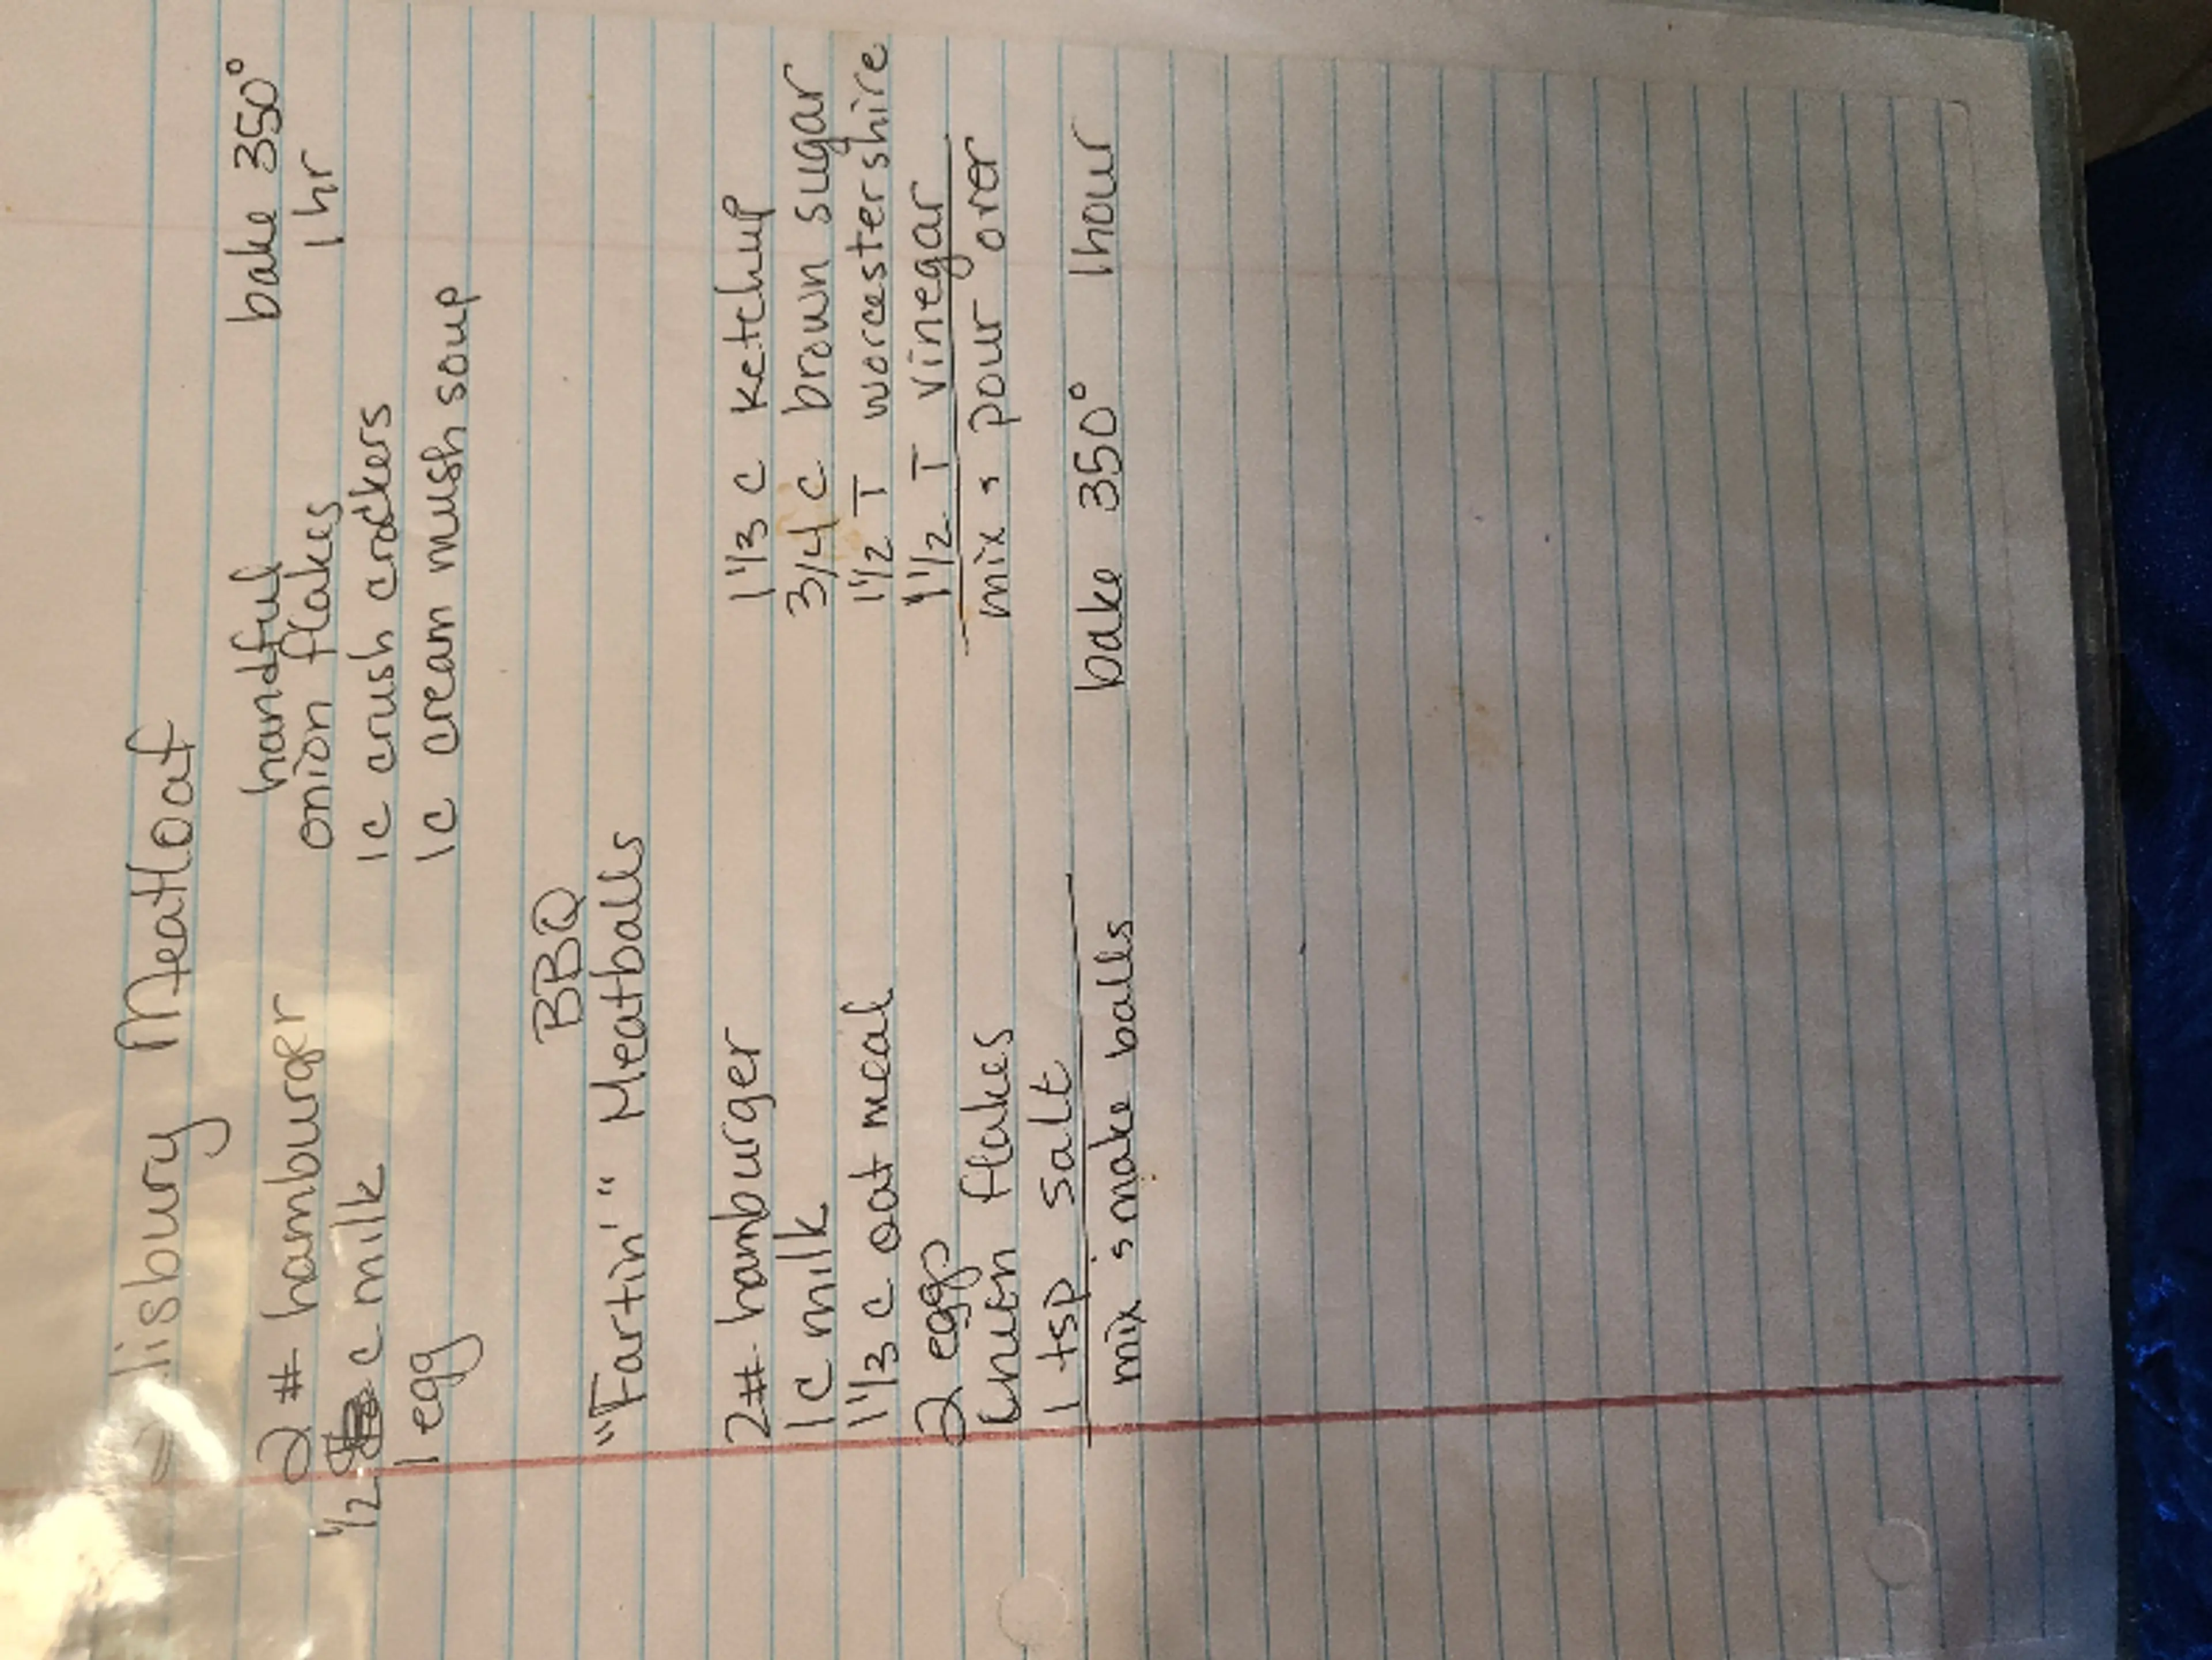 Salisbury Meatloaf
2 # hamburger
1/2 c milk
1 egg
handful
onion flakes
1 c crush crackers
1 c cream mush soup
bake 350°
1 hr
BBQ
"Fartin'" Meatballs
2# hamburger
1 c milk
1 1/3 c oat meal
2 eggs
onion flakes
1 tsp salt
mix & make balls
1 1/3 c ketchup
3/4 c brown sugar
1 1/2 T worcestershire
1 1/2 T vinegar
mix & pour over
bake 350° 1 hour